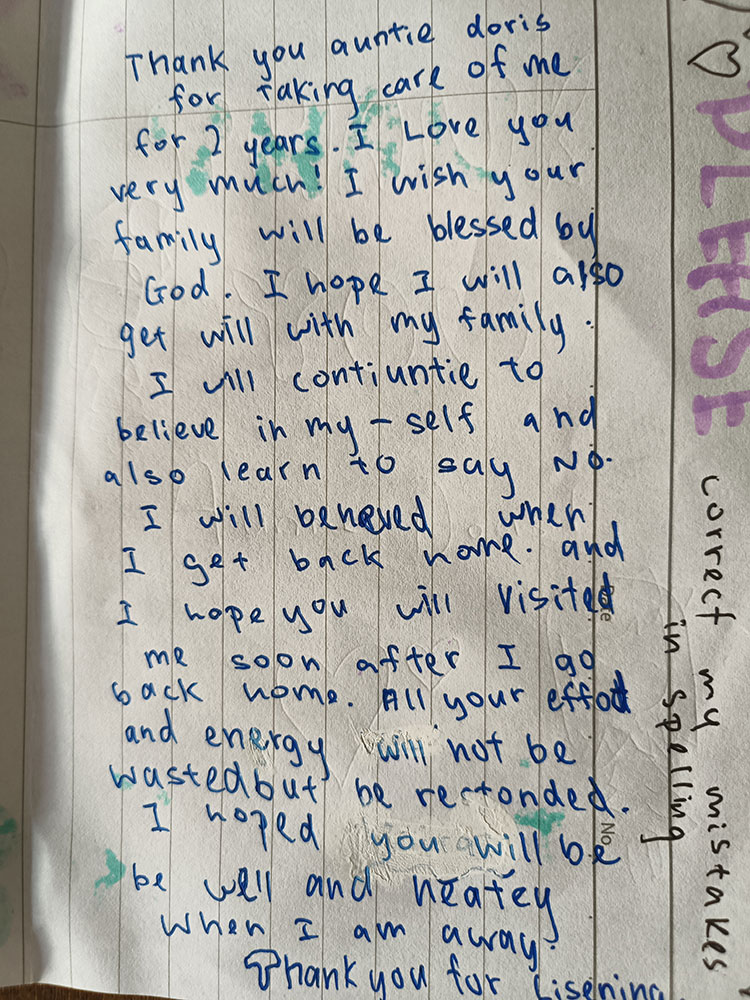 Thank you auntie doris
for taking care of me
for 2 years. I Love you
very much! I wish your
family will be blessed by
God. I hope I will also
get will with my family.
I will contiuntie to
believe in my-self and
also learn to say No.
I will beheved when
I get back home. and
I hope you will visited
me soon after I go
back home. All your effot
and energy will not be
wasted but be restonded.
I hoped you will be
be well and heatey
when I am away.
Thank you for Lisening
PLEASE
correct my mistakes
in spelling
No